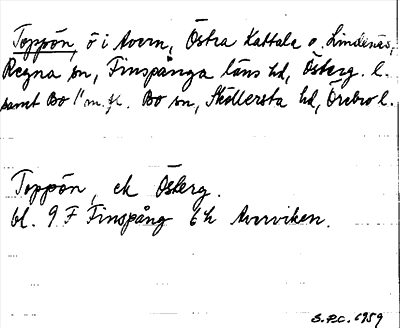 Toppön, ö i Avern, Östra Kattala o. Lindenäs,
Regna sn, Finspånga läns hd, Österg. l.
samt Bo 1⁠" m.fl. Bo sn, Sköllersta hd, Örebro l.
Toppön, ek Österg.
bl. 9 F Finspång 6 h Averviken.
S.P.C. 1959